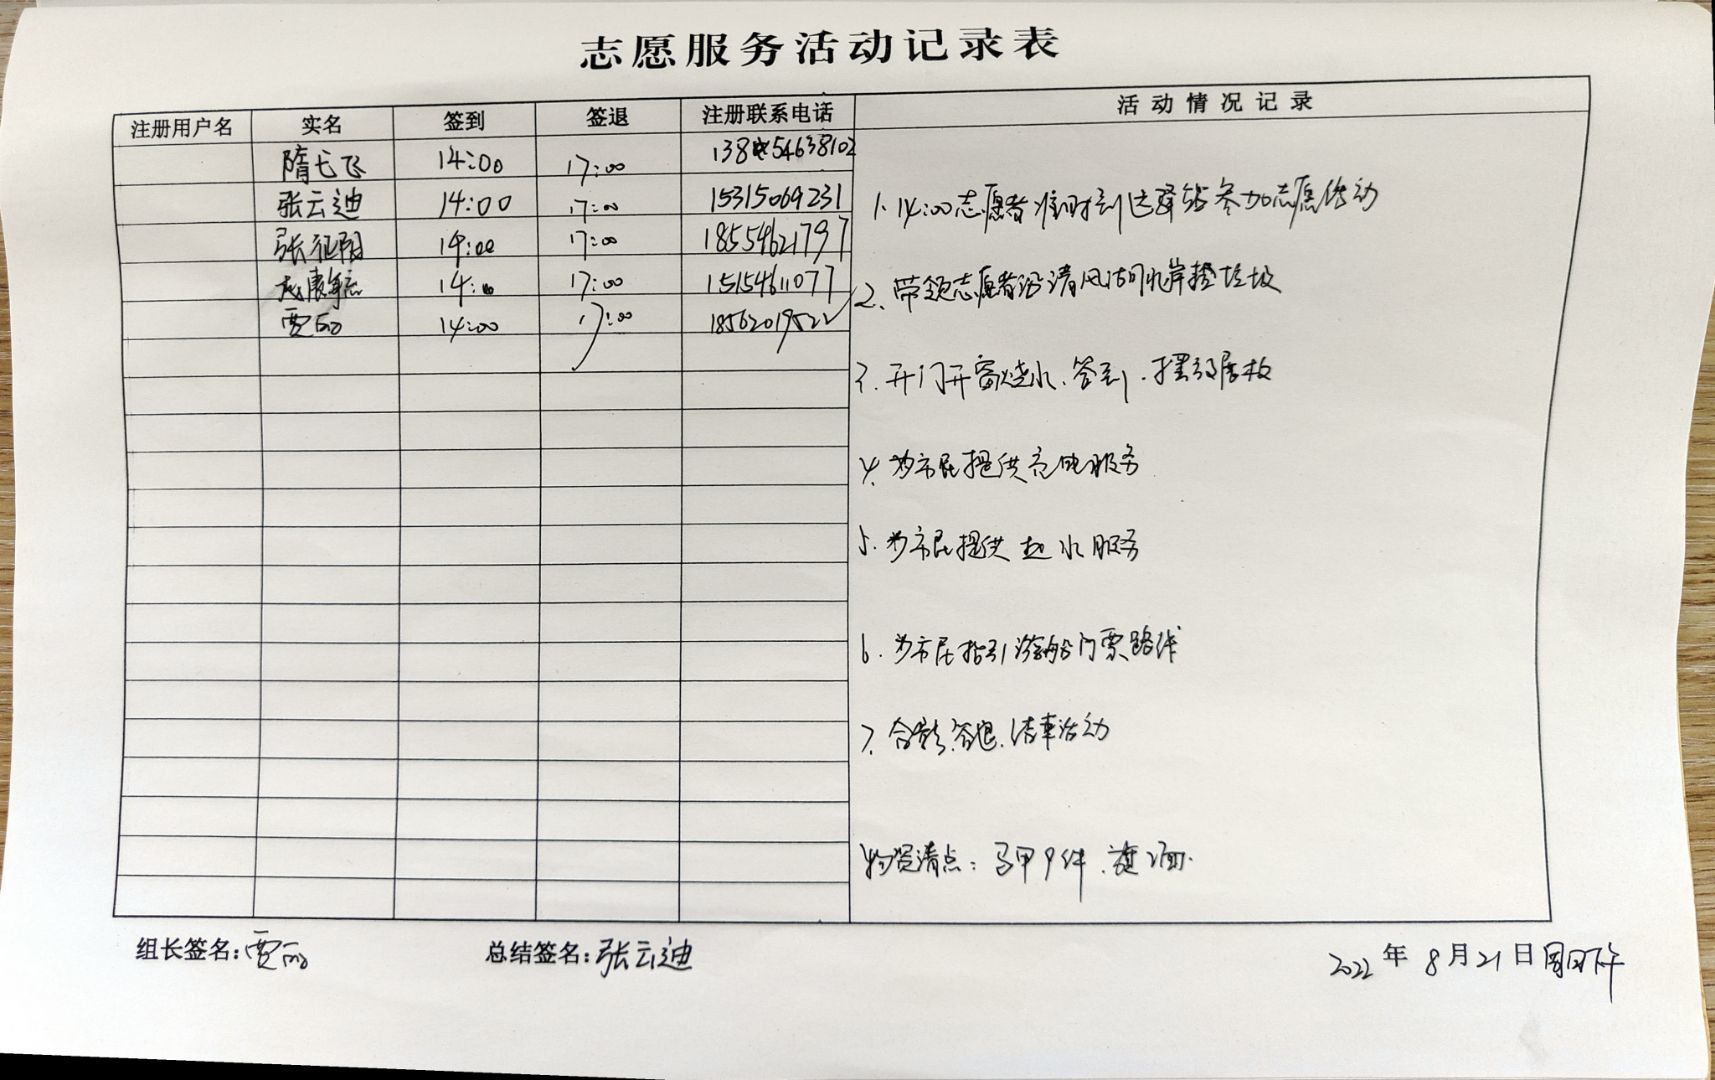 志愿服务活动记录表
注册用户名 实名 签到 签退 注册联系电话 活动情况记录
隋七飞 14:00 17:00 13854638102
张云迪 14:00 17:00 15315069231
张征阳 14:00 17:00 18554621797
14:00 17:00 15154611077
贾 14:00 17:00 18562019522
1. 14:00志愿者准时到达驿站参加志愿活动
2. 带领志愿者沿清风湖北岸捡垃圾
3. 开门开窗烧水、签到、摆放展板
4. 为市民提供充电服务
5. 为市民提供 水服务
6. 为市民指引游船门票路线
7. 合影、签退、结束活动
物资清点:马甲9件、旗1面.
组长签名:贾 总结签名:张云迪 2022年8月21日周日下午